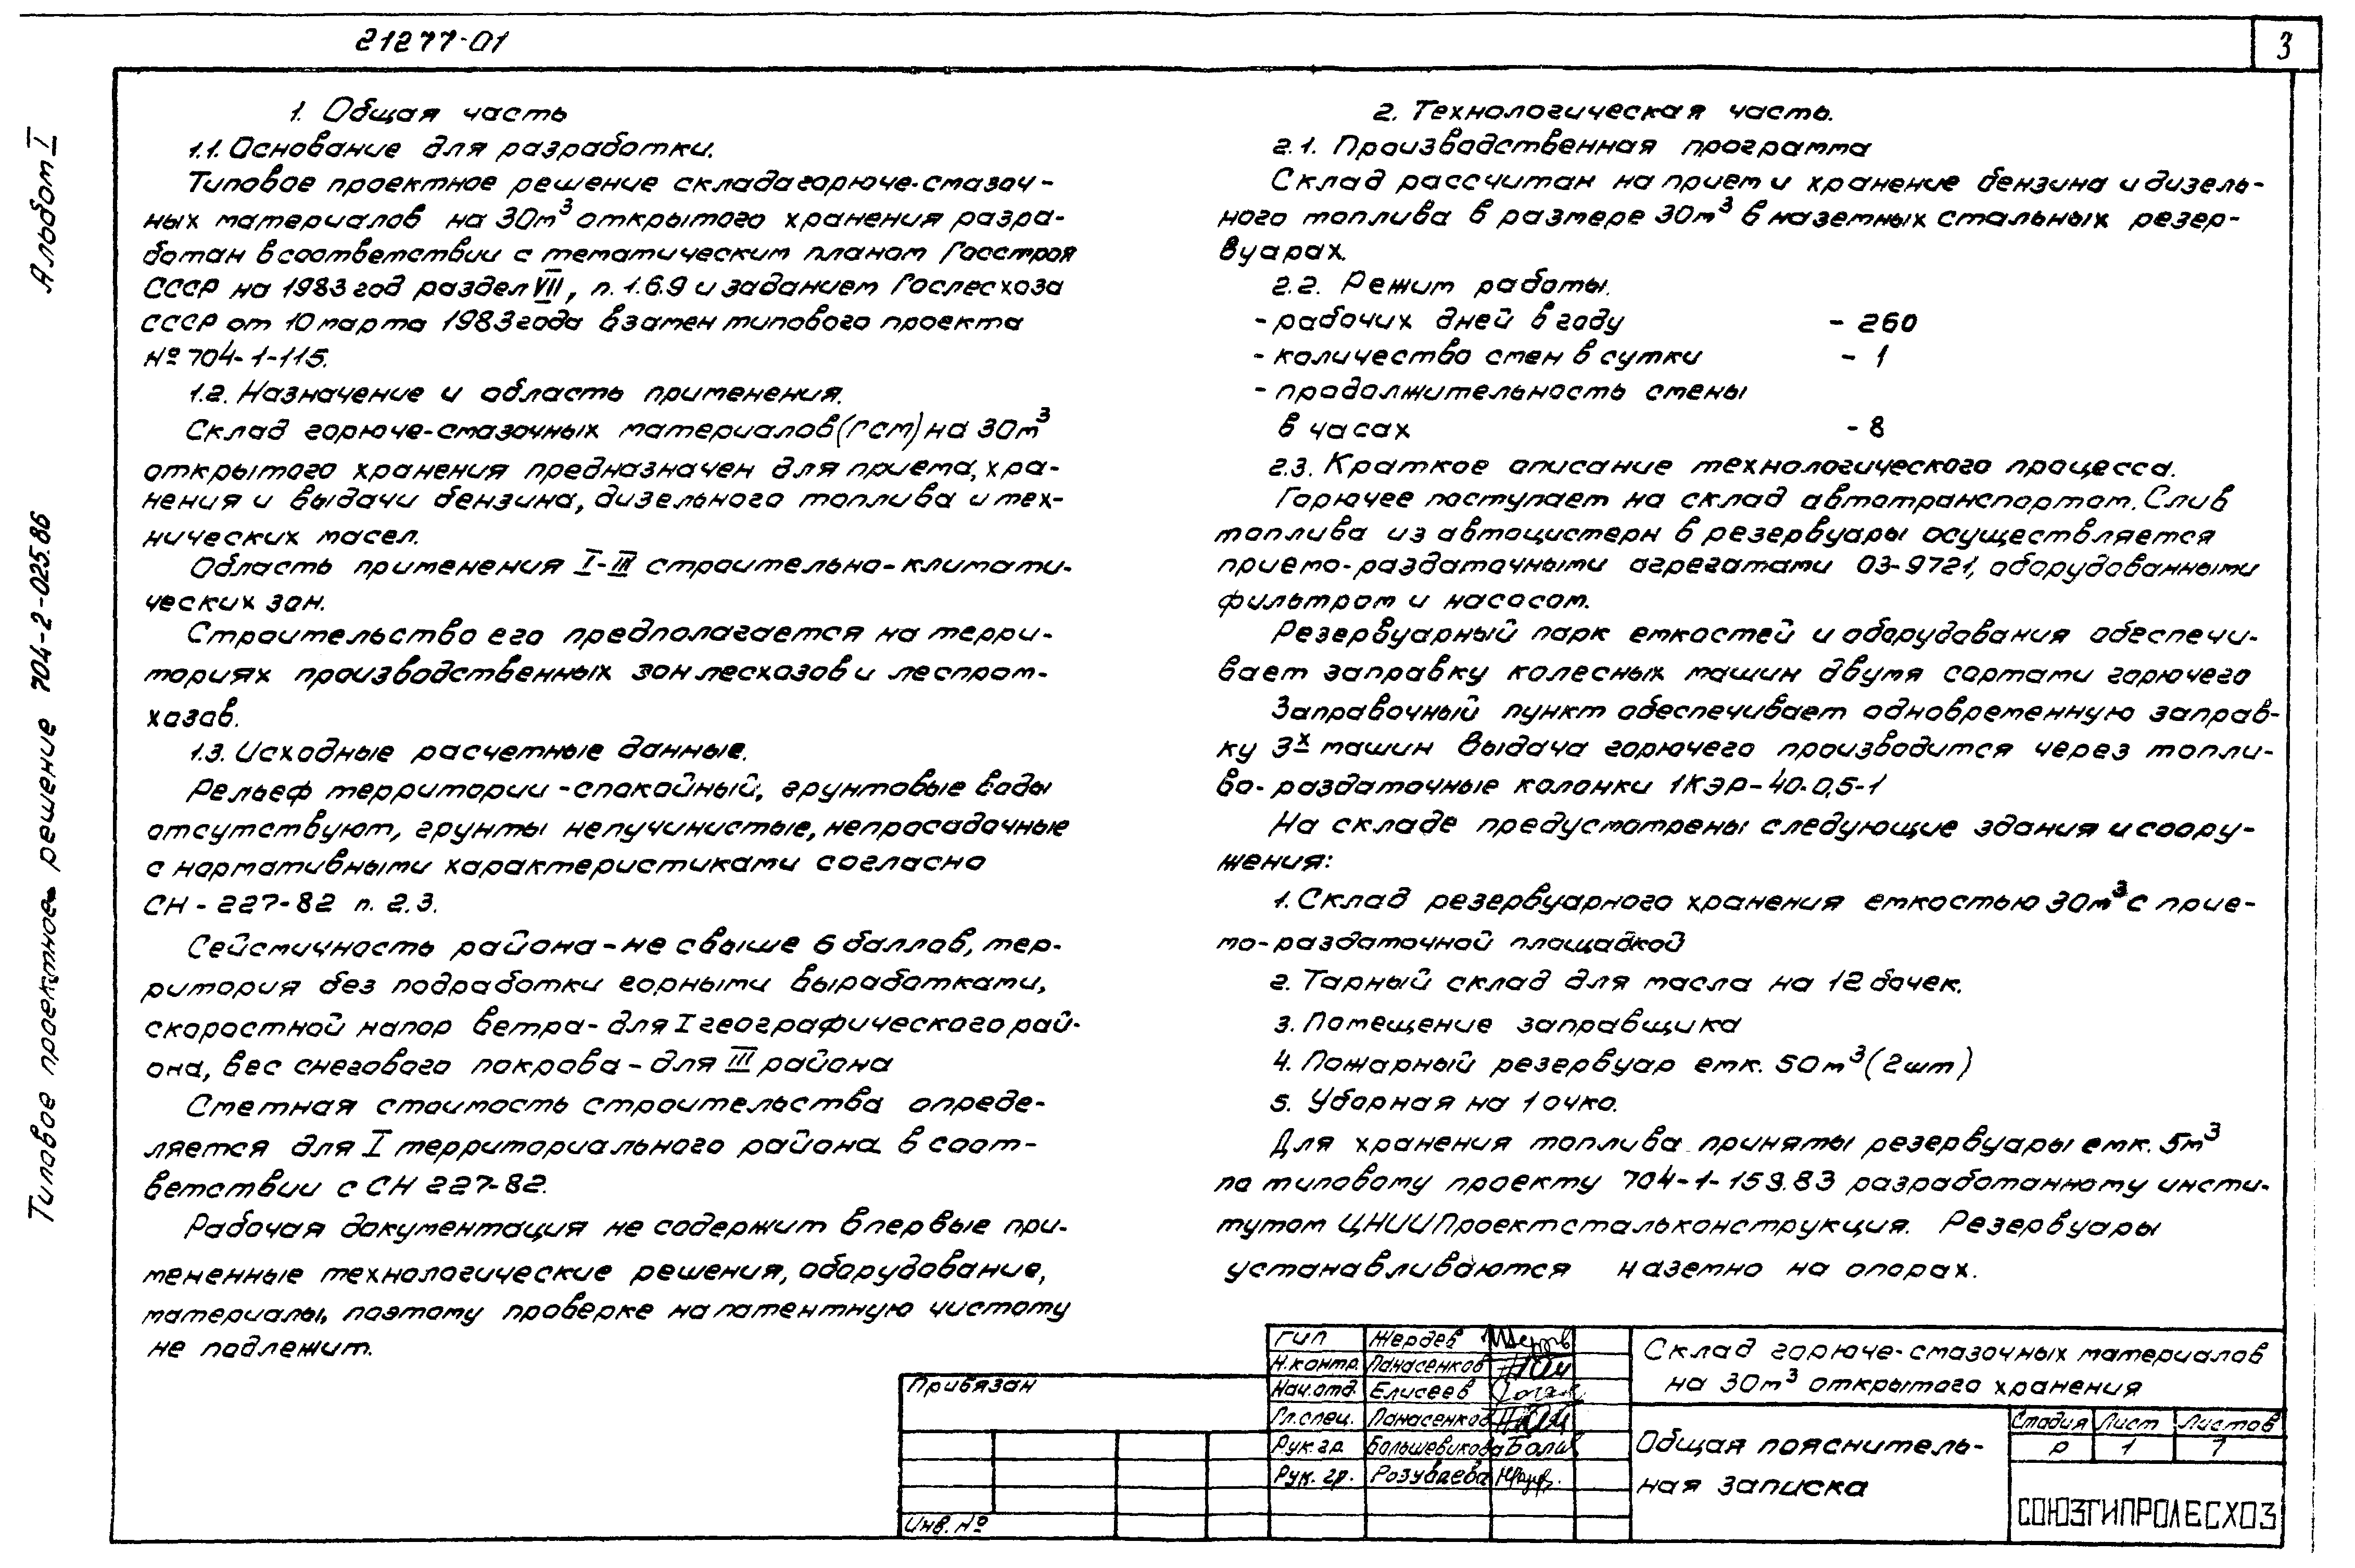 21277-01
3
Альбом I
Типовое проектное решение 704-2-025.86
1. Общая часть
1.1. Основание для разработки.
Типовое проектное решение склада горюче-смазоч-
ных материалов на 30м³ открытого хранения разра-
ботан в соответствии с тематическим планом Госстроя
СССР на 1983 год раздел VII, п. 1.6.9 и заданием Гослесхоза
СССР от 10 марта 1983 года взамен типового проекта
№ 704-1-115.
1.2. Назначение и область применения.
Склад горюче-смазочных материалов (ГСМ) на 30м³
открытого хранения предназначен для приема, хра-
нения и выдачи бензина, дизельного топлива и тех-
нических масел.
Область применения I-III строительно-климати-
ческих зон.
Строительство его предполагается на терри-
ториях производственных зон лесхозов и леспром-
хозов.
1.3. Исходные расчетные данные.
Рельеф территории - спокойный, грунтовые воды
отсутствуют, грунты непучинистые, непросадочные
с нормативными характеристиками согласно
СН-227-82 п. 2.3.
Сейсмичность района - не свыше 6 баллов, тер-
ритория без подработки горными выработками,
скоростной напор ветра - для I географического рай-
она, вес снегового покрова - для III района
Сметная стоимость строительства опреде-
ляется для I территориального района в соот-
ветствии с СН 227-82.
Рабочая документация не содержит впервые при-
мененные технологические решения, оборудование,
материалы, поэтому проверке на патентную чистоту
не подлежит.
2. Технологическая часть.
2.1. Производственная программа
Склад рассчитан на прием и хранение бензина и дизель-
ного топлива в размере 30м³ в наземных стальных резер-
вуарах.
2.2. Режим работы.
- рабочих дней в году - 260
- количество смен в сутки - 1
- продолжительность смены
в часах - 8
2.3. Краткое описание технологического процесса.
Горючее поступает на склад автотранспортом. Слив
топлива из автоцистерн в резервуары осуществляется
приемо-раздаточными агрегатами 03-9721, оборудованными
фильтром и насосом.
Резервуарный парк емкостей и оборудования обеспечи-
вает заправку колесных машин двумя сортами горючего
Заправочный пункт обеспечивает одновременную заправ-
ку 3х машин Выдача горючего производится через топли-
во-раздаточные колонки 1КЭР-40-0,5-1
На складе предусмотрены следующие здания и соору-
жения:
1. Склад резервуарного хранения емкостью 30м³ с прие-
мо-раздаточной площадкой
2. Тарный склад для масла на 12 бочек.
3. Помещение заправщика
4. Пожарный резервуар емк. 50м³ (2шт)
5. Уборная на 1 очко.
Для хранения топлива приняты резервуары емк. 5м³
по типовому проекту 704-1-159.83 разработанному инсти-
тутом ЦНИИПроектстальконструкция. Резервуары
устанавливаются наземно на опорах.
Привязан
Инв. №
ГИП Жердев
Н.контр. Панасенков
Нач.отд. Елисеев
Гл.спец. Панасенков
Рук.гр. Большевикова
Рук. гр. Розуваева
Склад горюче-смазочных материалов
на 30м³ открытого хранения
Общая пояснитель-
ная записка
Стадия Лист Листов
Р 1 7
СОЮЗГИПРОЛЕСХОЗ